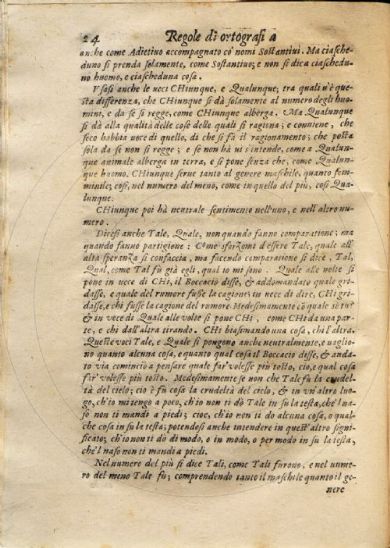 24 Regole di ortografi a
anche come Adiettiuo accompagnato co' nomi Sostantiui. Ma ciasche-
duno si prenda solamente, come Sostantiuo; e non si dica ciaschedu-
no huomo, e ciascheduna cosa.
Vsasi anche le uoci CHiunque, e Qualunque, tra quali u'è que-
sta differenza, che CHiunque si dà solamente al numero degli huo-
mini, e da se si regge, come CHiunque alberga. Ma Qualunque
si dà alla qualità delle cose delle quali si ragiona; e conuiene, che
seco habbia uoce di quelle, di che si fù il ragionamento; che posta
sola da se non si regge; e se non hà ui s'intende, come a Qualun-
que animale alberga in terra, e si pone senza che, come Qualun-
que huomo. CHiunque serue tanto al genere maschile, quanto fem-
minile; così, nel numero del meno, come in quello del più, così Qua-
lunque.
CHiunque poi hà neutrale sentimento nell'uno, e nell'altro nu-
mero.
Dicesi anche Tale, Quale, non quando fanno comparatione; ma
quando fanno partigione: Come sforzomi d'essere Tale, quale all'
alta speranza si confaccia, ma facendo comparatione si dice, Tal,
Qual, come Tal fù già egli, qual io mi sono. Quale alle uolte si
pone in uece di CHi, il Boccaccio disse, & addomandato quale gri-
dasse, e quale del romore fusse la cagione; in uece di dire, CHi gri-
dasse, e chi fusse la cagione del romore. Medesimamente,
& in uece di Quale alle uolte si pone CHi, come CHi da una par-
te, e chi dall'altra tirando. CHi biasimando una cosa, chi l'altra.
Queste uoci Tale, e Quale si pongono anche neutralmente, e uoglio-
no quanto alcuna cosa, e quanto qual cosa il Boccaccio disse, & anda-
to uia cominciò a pensare quale far uolesse più tosto, cioè, qual cosa
far' uolesse più tosto. Medesimamente se non che Tale fù la crudel-
tà del cielo; cio è fù cosa la crudeltà del cielo, & in un'altro luo-
go, ch'io mi tengo a poco, ch'io non ti dò Tale in sù la testa, che'l na-
so non ti mandi a piedi; cioè, ch'io non ti do alcuna cosa, o qual-
che cosa in sù la testa; potendosi anche intendere in quest'altro signi-
ficato; ch'io non ti do di modo, o in modo, o per modo in su la testa,
che'l naso non ti mandi a piedi.
Nel numero del più si dice Tali, come Tali furono, e nel nume-
ro del meno Tale fù; comprendendo tanto il maschile quanto il ge-
nere